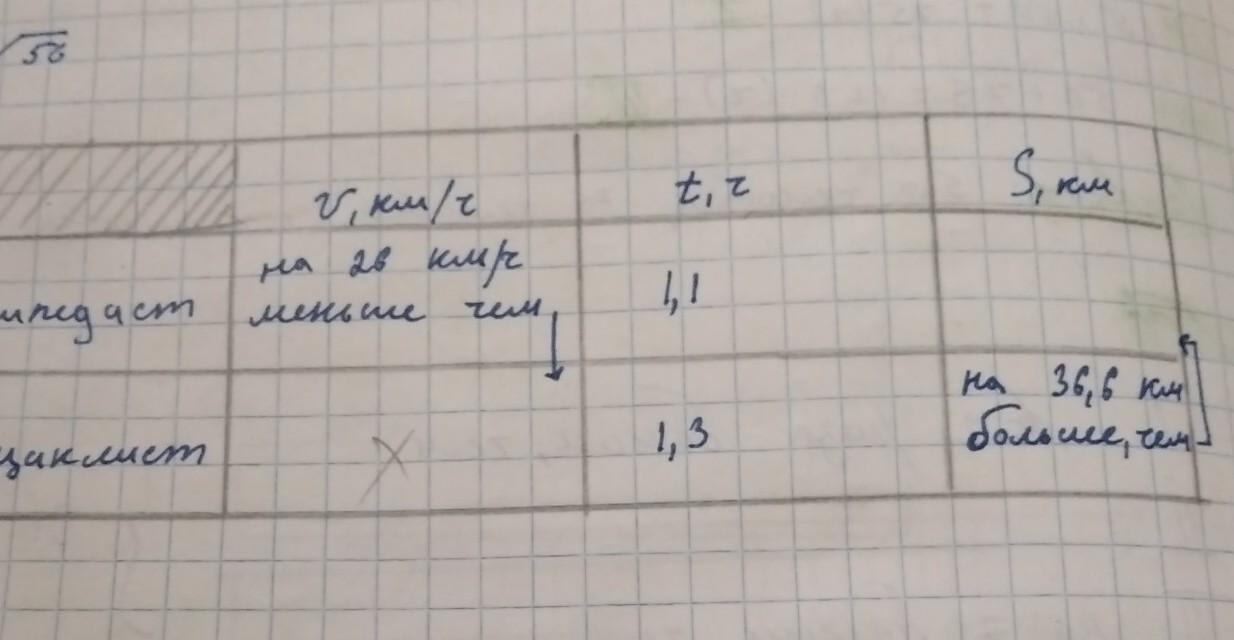 √56
v, км/ч
t, ч
S, км
на 26 км/ч
меньше чем
1,1
на 36,6 км
больше, чем
циклист
x
1,3